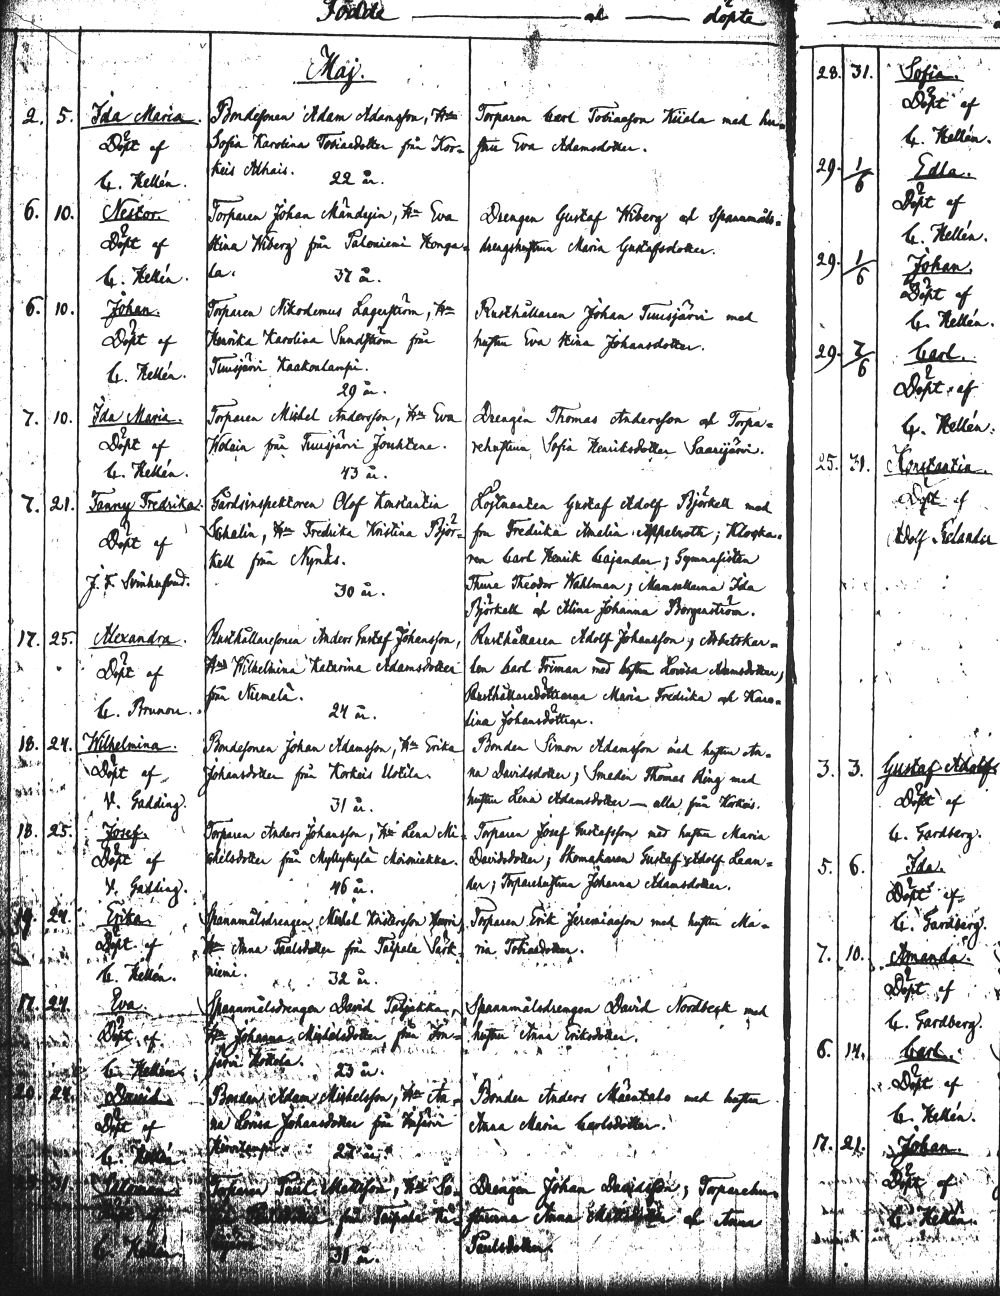 Födde och döpte
Maj.
2. 5. Ida Maria. Bondesonen Adam Adamsson, H:u Torparen Carl Tobiasson Kiiala med hu-
Döpt af Sofia Karolina Tobiasdotter från Kor- stru Eva Adamsdotter.
C. Hellén. keis Alhais. 22 år.
6. 10. Nestor. Torparen Johan Mändsin, H:u Eva Drengen Gustaf Wiberg och Spanmåls-
Döpt af Stina Wiberg från Palomieni Konga- drengshustrun Maria Gustafsdotter.
C. Hellén. la. 37 år.
6. 10. Johan. Torparen Nikodemus Lagerström, H:u Rusthållaren Johan Tuusjärvi med
Döpt af Henrika Karolina Sundström från hustru Eva Stina Johansdotter.
C. Hellén. Tuusjärvi Kaakonlampi.
29 år.
7. 10. Ida Maria. Torparen Michel Andersson, H:u Eva Drengen Thomas Andersson och Torpa-
Döpt af från Tuusjärvi rehustrun Sofia Henriksdotter Saarijärvi.
C. Hellén. 43 år.
7. 21. Fanny Fredrika. Gårdsinspektoren Olof Konstantin Löjtnanten Gustaf Adolf Björkell med
Döpt af Schalin, H:u Fredrika Kristina Björ- fru Fredrika Amelia Appelroth; Klocka-
kell från Nynäs. ren Carl Henrik Cajander; Gymnasisten
J. F. Svinhufvud. 30 år. Thure Theodor Wahlman; Mamsellerna Ida
Björkell och Alina Johanna Borgenström.
17. 25. Alexandra. Rusthållaresonen Anders Gustaf Johansson, Rusthållaren Adolf Johansson; Arbetskar-
Döpt af H:u Wilhelmina Katarina Adamsdotter len Carl Friman med hustru Lovisa Adamsdotter;
från Niemelä. Rusthållaredöttrarna Maria Fredrika och Karo-
C. Brunou. 24 år. lina Johansdöttrar.
18. 24. Wilhelmina. Bondesonen Johan Adamsson, H:u Erika Bonden Simon Adamsson med hustru An-
Döpt af Johansdotter från Korkeis Uotila. na Davidsdotter; Smeden Thomas Ring med
V. Gadding. 31 år. hustru Lena Adamsdotter — alla från Korkeis.
18. 25. Josef. Torparen Anders Johansson, H:u Lena Mi- Torparen Josef Gustafsson med hustru Maria
Döpt af chelsdotter från Myllykylä Moisniekka. Davidsdotter; Skomakaren Gustaf Adolf Lean-
V. Gadding. 46 år. der; Torparehustrun Johanna Adamsdotter.
19. 24. Erika. Spanmålsdrengen Michel Andersson Torparen Erik Jeremiasson med hustru Ma-
Döpt af H:u Anna Paulsdotter från Taipale Särk- ria Tobiasdotter.
C. Hellén. niemi. 32 år.
17. 24. Eva. Spanmålsdrengen David Spanmålsdrengen David Nordbeck med
Döpt af H:u Johanna Michelsdotter från Im- hustru Anna Eriksdotter.
C. Hellén. järvi Kottola. 23 år.
20. 24. David. Bonden Adam Michelsson, H:u An- Bonden Anders Mäentalo med hustru
Döpt af na Lovisa Johansdotter från Imjärvi Anna Maria Carlsdotter.
C. Hellén. 27 år.
31. Torparen Paul Mattsson, H:u Drengen Johan Davidsson; Torparehu-
Döpt af från Taipale strurna Anna och Anna
C. Hellén. 31 år. Paulsdotter.
28. 31. Sofia.
Döpt af
C. Hellén.
29. 1/6 Edla.
Döpt af
C. Hellén.
29. 1/6 Johan.
Döpt af
C. Hellén.
29. 7/6 Carl.
Döpt af
C. Hellén.
25. 31. Konstantia.
Döpt af
Adolf Relander
3. 3. Gustaf Adolf
Döpt af
C. Gardberg.
5. 6. Ida.
Döpt af
C. Gardberg.
7. 10. Amanda.
Döpt af
C. Gardberg.
6. 14. Carl.
Döpt af
C. Hellén.
17. 21. Johan.
Döpt af
C. Hellén.